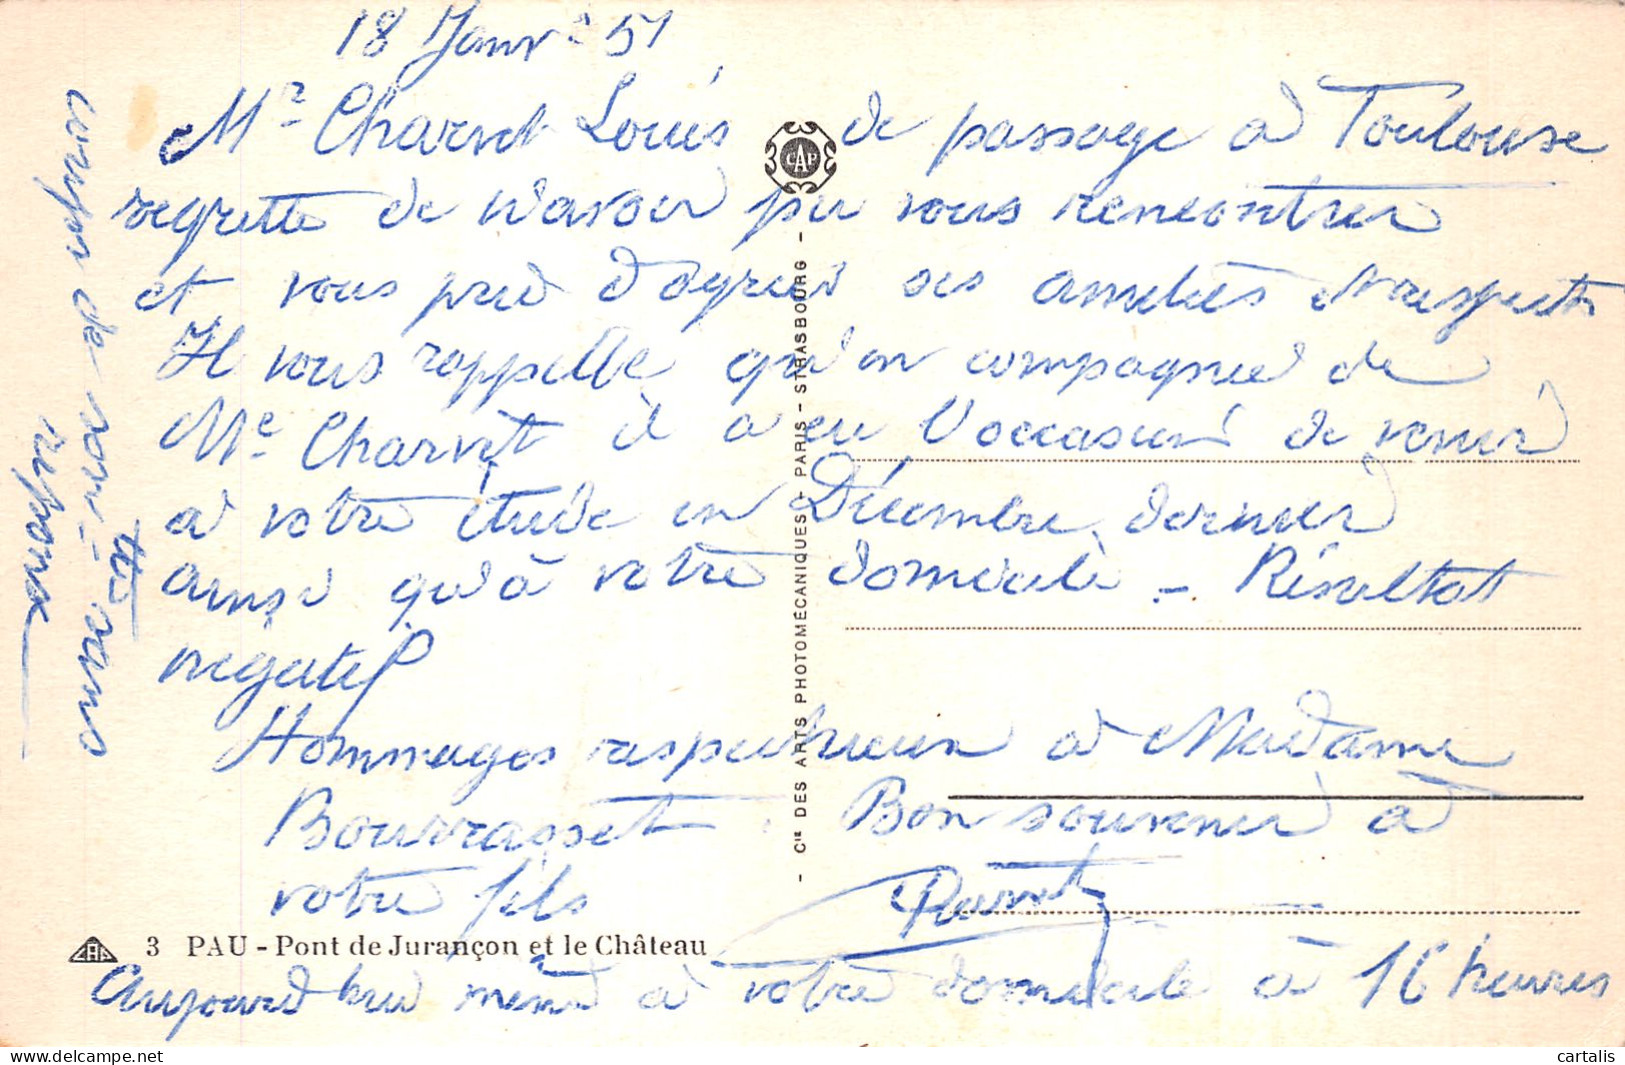 18 Janvr 51
Mr Charvet Louis de passage à Toulouse
regrette de n'avoir pu vous rencontrer
et vous prie d'agréer ses amitiés et respects
Il vous rappelle qu'en compagnie de
Me Charvet il a eu l'occasion de venir
à votre étude en Décembre dernier
ainsi qu'à votre domicile - Résultat
négatif
Hommages respectueux à Madame
Bourrasset. Bon souvenir à
votre fils
Charvet
Aujourd'hui même à votre domicile à 16 heures
de
sans
réponse
CAP
- Cie DES ARTS PHOTOMÉCANIQUES - PARIS - STRASBOURG -
CAP 3 PAU - Pont de Jurançon et le Château
cartalis